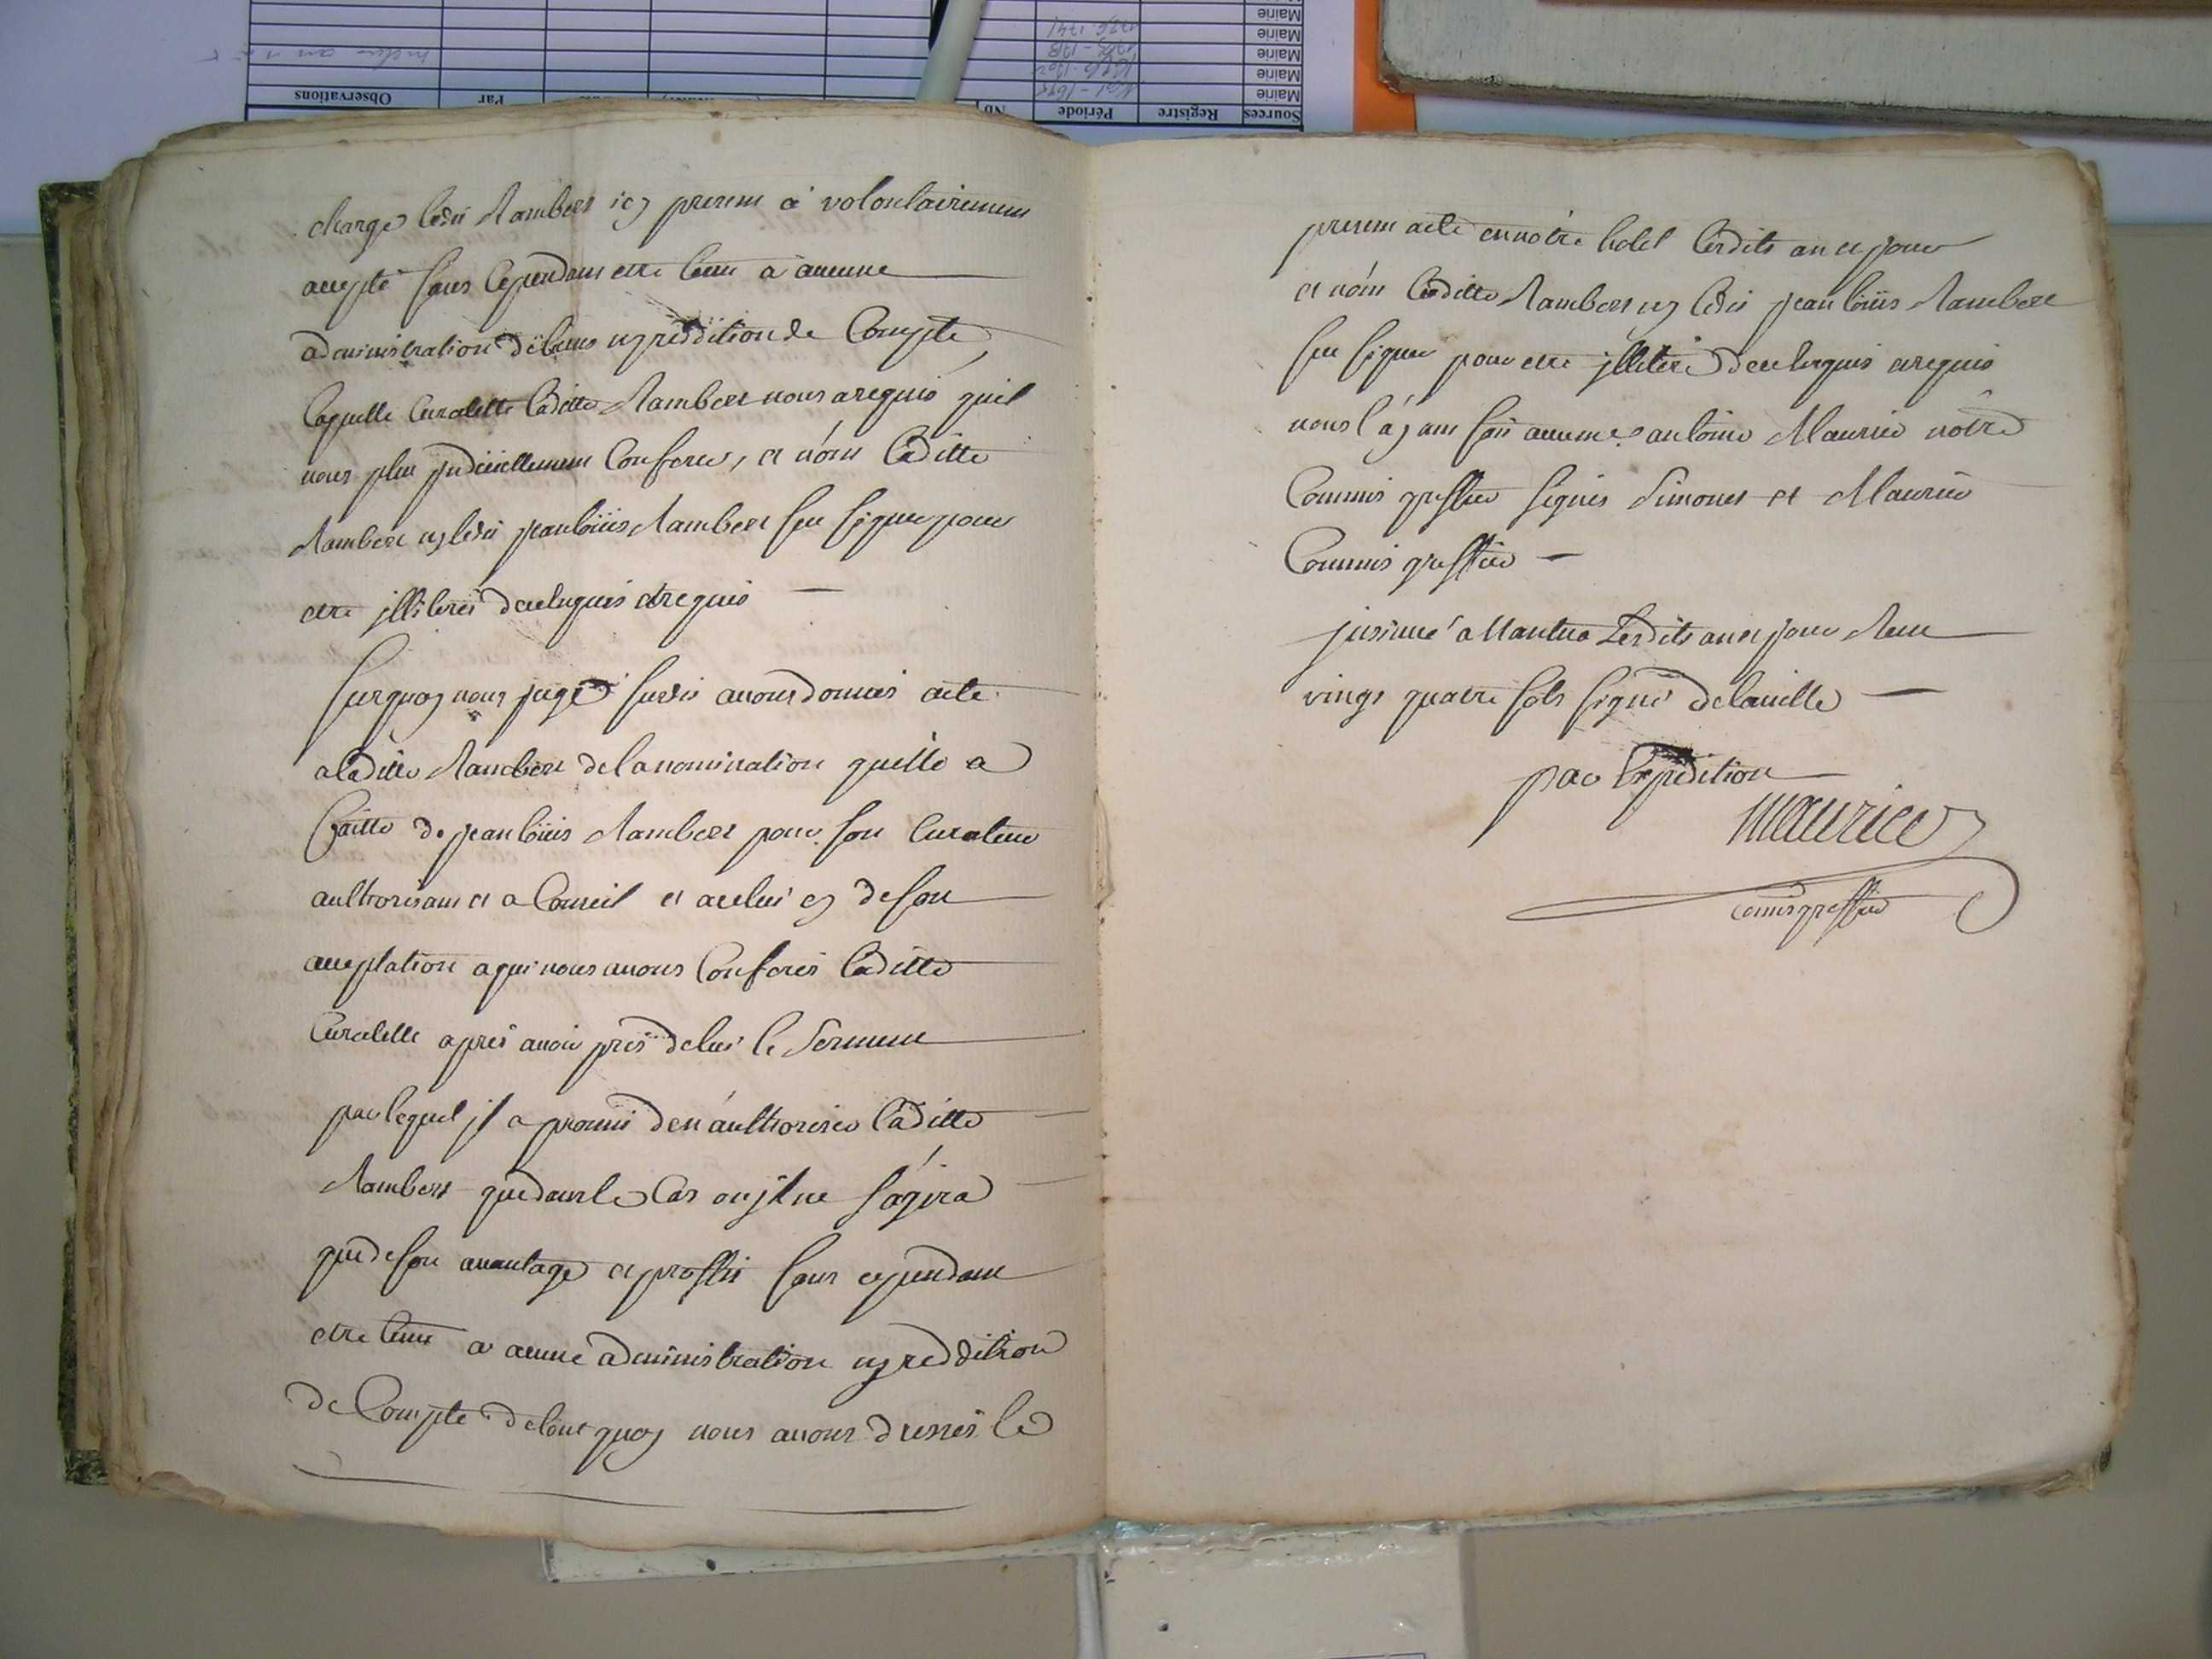 charge ledit Rambert icy present a volontairement
accepté sans cependant etre tenu a aucune
administration de biens ny reddition de Compte,
laquelle Curatelle laditte Rambert nous a requis quil
nous plut judiciellement Conferer, et n'ont laditte
Rambert ny ledit jean loüis Rambert sçu signer pour
etre jlliterés de ce enquis et requis —
surquoy nous juge susdit avons donnés acte
a laditte Rambert de la nomination quelle a
faitte de jean loüis Rambert pour son Curateur
aulthorisant et a Conseil et a celui cy de son
acceptation a qui nous avons Conferés laditte
Curatelle aprés avoir pris de lui le Serment
par lequel jl a promis den aulthoriser laditte
Rambert que dans le Cas ou jl ne s'agira
que de son avantage et proffit sans cependant
etre tenu a aucune administration ny reddition
de Compte de tout quoy nous avons dressés le
present acte en nôtre hotel lesdits an et jour
et n'ont laditte Rambert ny ledit jean loüis Rambert
sçu signer pour etre jlliteré de ce enquis et requis
nous l'ayant fait avec me antoine Maurier nôtre
Commis greffier signés Simonet et Maurier
Commis greffier —
jnsinué a Nantua Lesdits an et jour Reçu
vingt quatre sols signé delaville —
par Expedition
Maurier
comis greffier
Sources Registre Période Nb Par Observations
Mairie
Mairie
Mairie
Mairie
Mairie